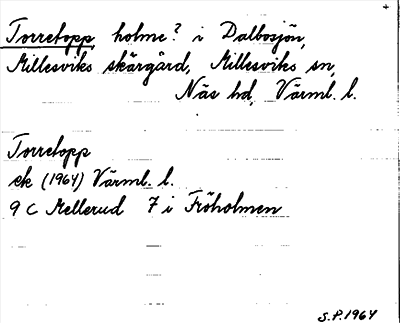 Torretopp, holme? i Dalbosjön,
Millesviks skärgård, Millesviks sn,
Näs hd, Värml. l.
Torretopp
ek (1964) Värml. l.
9 C Mellerud 7 i Fröholmen
S.P. 1964